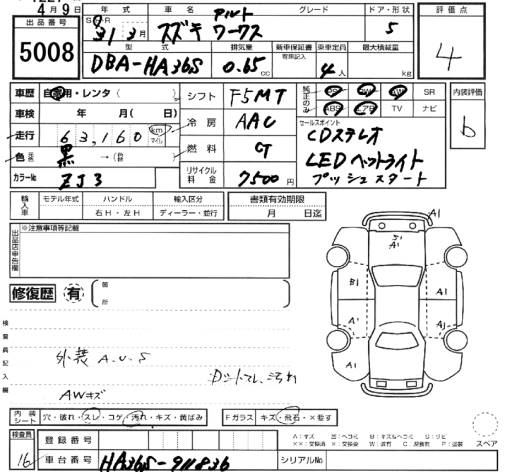 4月9日
年式 車名 グレード ドア・形状 評価点
31 3月 スズキ アルト ワークス 5 4
出品番号
5008
型式 排気量 新車保証書 乗車定員 最大積載量
DBA-HA36S 0.65cc 4人 kg
車歴 自家用・レンタ( ) シフト F5MT 純正のみ PS PW AW SR 内装評価
ABS エアB TV ナビ b
車検 年 月( 日) 冷房 AAC セールスポイント
走行 63,160 km マイル CDステレオ
色 黒 → 燃料 G LEDヘッドライト
カラーNo. ZJ3 リサイクル料金 7500円 プッシュスタート
輸入車 モデル年式 ハンドル 右H・左H 輸入区分 ディーラー・並行 書類有効期限 月 日迄
出品店申告欄 ※注意事項等記載
修復歴 有 箇所
検査員記入欄
外装 A.U.S
AWキズ
A1
A1
B1 A1
A1 A1
A1
内装シート 穴・破れ・スレ・コゲ・汚れ・キズ・黄ばみ Fガラス キズ・飛石・×要す
スペア
検査員 16 登録番号
車台番号 HA36S-911836 シリアルNo.